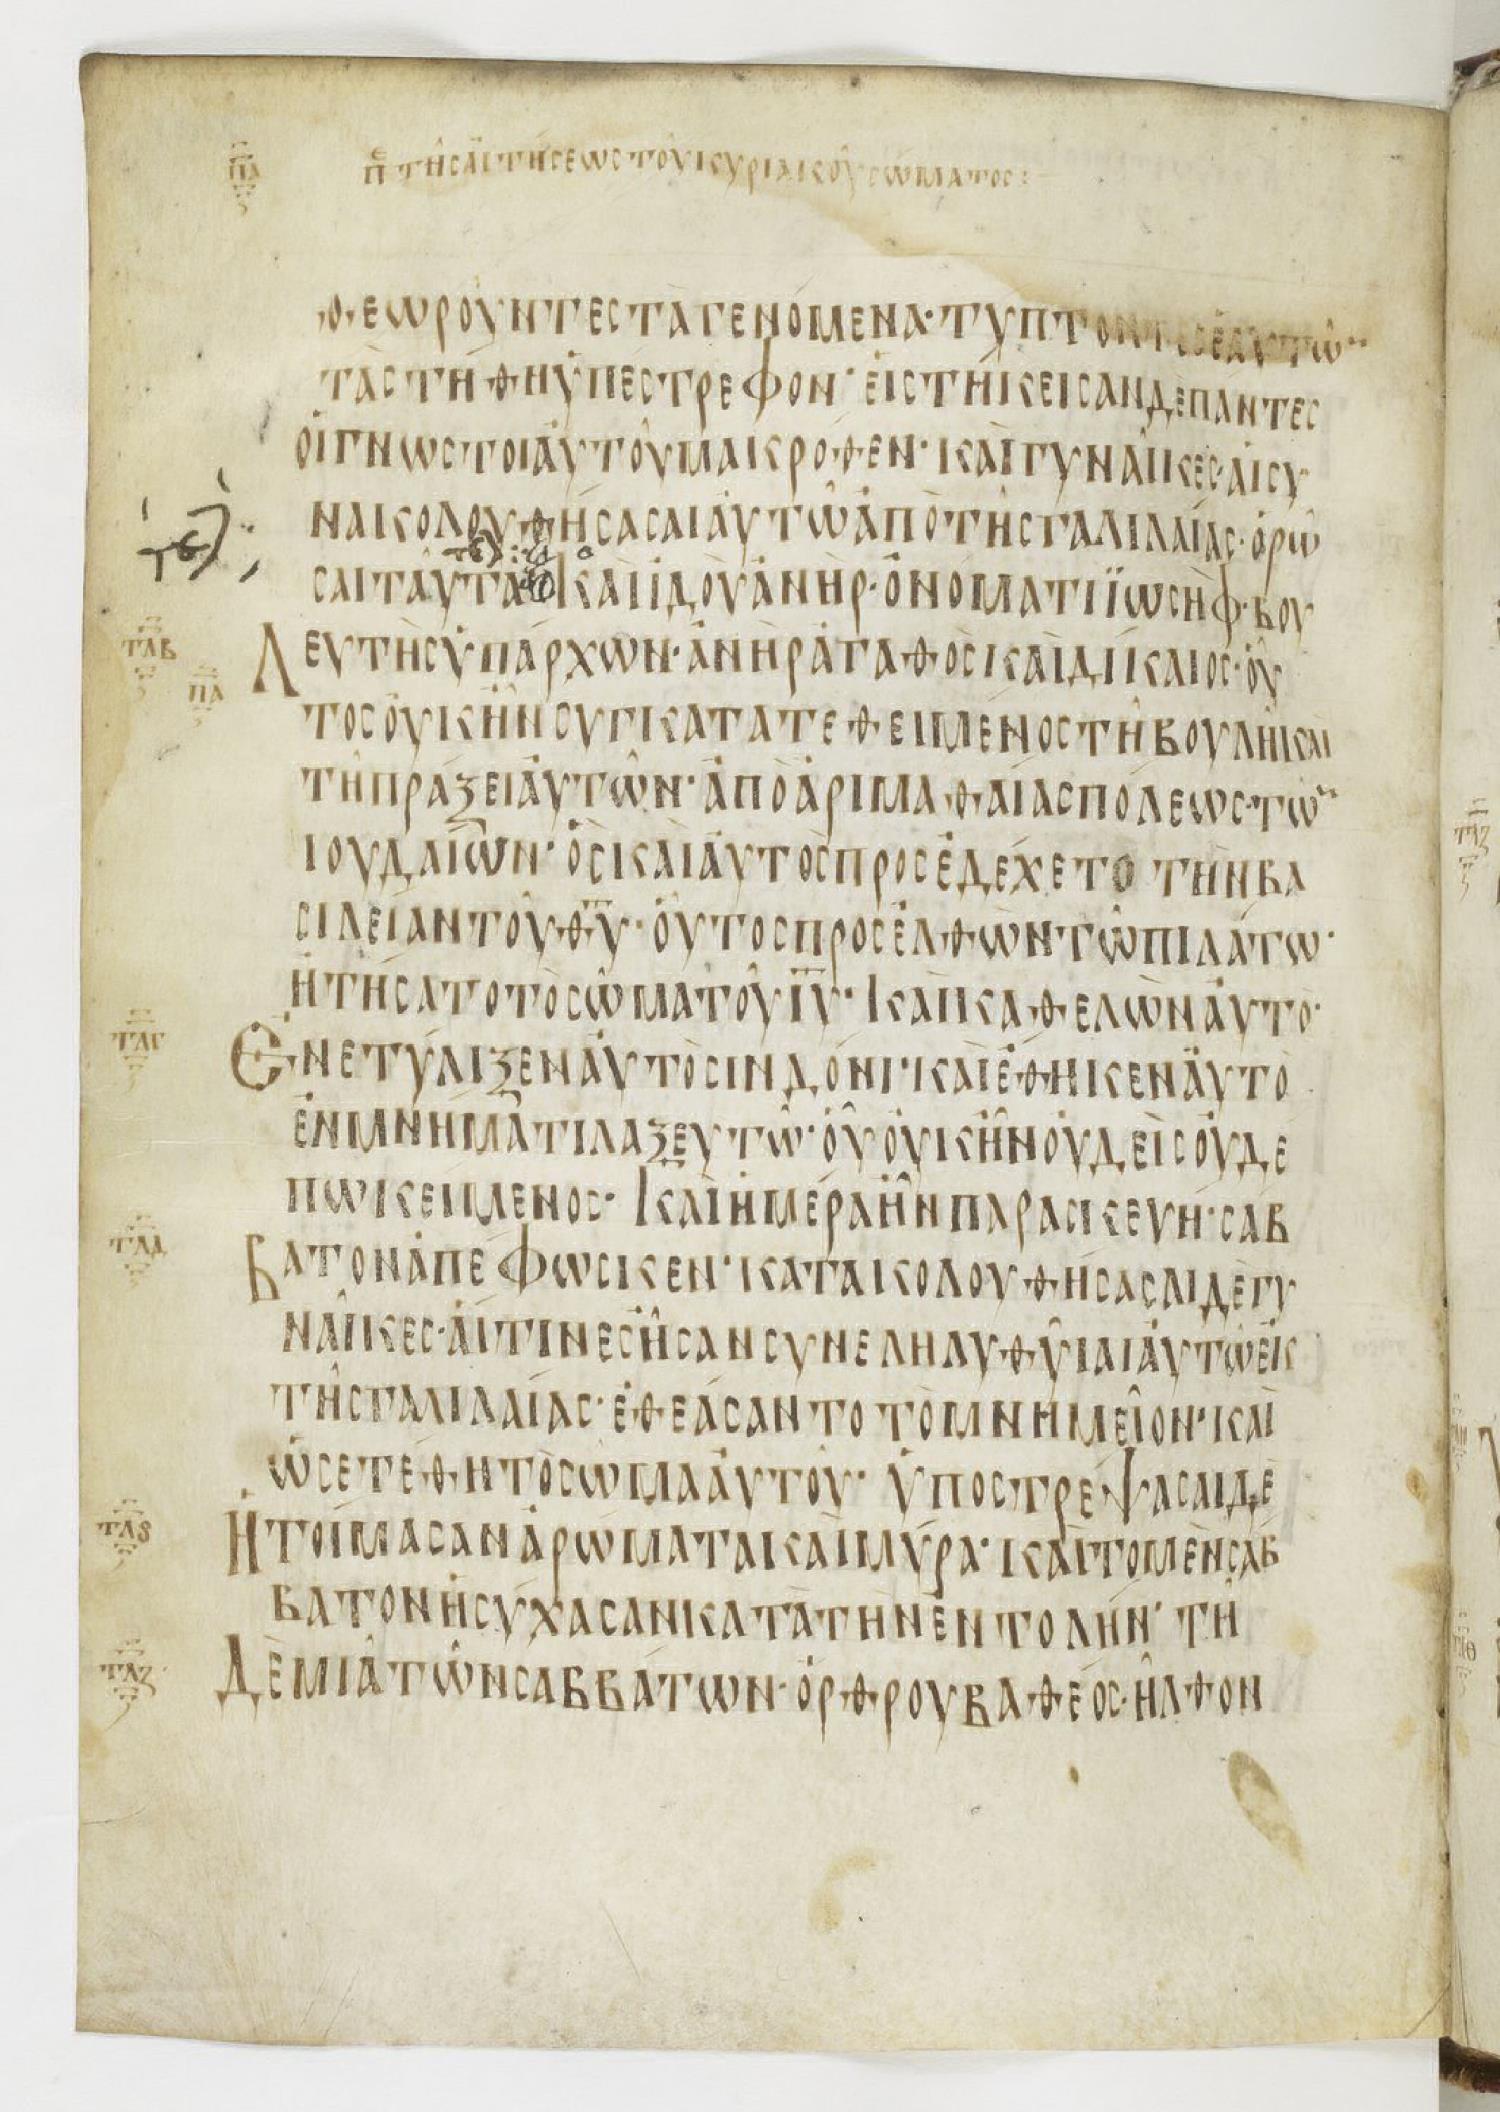 ΠΑ ΠΕ ΤΗ͂Σ ΑἸΤΉΣΕΩΣ ΤΟΥ͂ ΚΥΡΙΑΚΟΥ͂ ΣΏΜΑΤΟΣ:
ΘΕΩΡΟΥΝΤΕΣ ΤᾺ ΓΕΝΌΜΕΝΑ· ΤΥΠΤΟΝΤΕΣ ἙΑΥΤΩ͂Ν
ΤᾺΣ ΤΉΘΗ ὙΠΈΣΤΡΕΦΟΝ· ΕἹΣΤΉΚΕΙΣΑΝ ΔῈ ΠΆΝΤΕΣ
ΟἹ ΓΝΩΣΤΟῚ ΑΥ̓ΤΟΥ͂ ΜΑΚΡΌΘΕΝ· ΚΑῚ ΓΥΝΑΙ͂ΚΕΣ· ΑἹ ΣΥ
ΝΑΚΟΛΟΥΘΉΣΑΣΑΙ ΑΥ̓ΤΩ͂ ἈΠῸ ΤΗ͂Σ ΓΑΛΙΛΑΊΑΣ· ὉΡΩ͂
ΣΑΙ ΤΑΥ͂ΤΑ· ΚΑῚ ἸΔΟῪ ἈΝῊΡ· ὈΝΌΜΑΤΙ ΪΩΣῊΦ· ΒΟΥ
ΤΛΒ ΠΑ ΛΕΥΤῊΣ ὙΠΆΡΧΩΝ· ἈΝῊΡ ἈΓΑΘῸΣ ΚΑῚ ΔΊΚΑΙΟΣ· ΟὟ
ΤΟΣ ΟΥ̓Κ ἮΝ ΣΥΓΚΑΤΑΤΕΘΕΙΜΈΝΟΣ ΤΗ͂ ΒΟΥΛΗ͂ ΚΑῚ
ΤΗ͂ ΠΡΆΞΕΙ ΑΥ̓ΤΩ͂Ν· ἈΠῸ ἈΡΙΜΑΘΑΊΑΣ ΠΌΛΕΩΣ· ΤΩ͂Ν
ΙΟΥΔΑΊΩΝ· ὋΣ ΚΑῚ ΑΥ̓ΤῸΣ ΠΡΟΣΕΔΈΧΕΤΟ ΤῊΝ ΒΑ
ΣΙΛΕΊΑΝ ΤΟΥ͂ Θ̅Υ̅· ΟὟΤΟΣ ΠΡΟΣΕΛΘῺΝ ΤΩ͂ ΠΙΛΆΤΩ·
ἨΤΉΣΑΤΟ ΤῸ ΣΩ͂ΜΑ ΤΟΥ͂ Ι̅Υ̅· ΚΑῚ ΚΑΘΕΛῺΝ ΑΥ̓ΤΌ·
ΤΛΓ ἘΝΕΤΎΛΙΞΕΝ ΑΥ̓ΤῸ ΣΙΝΔΌΝΙ· ΚΑῚ ἜΘΗΚΕΝ ΑΥ̓ΤῸ
ἘΝ ΜΝΉΜΑΤΙ ΛΑΞΕΥΤΩ͂· ΟὟ ΟΥ̓Κ ἮΝ ΟΥ̓ΔΕῚΣ ΟΥ̓ΔΈ
ΠΩ ΚΕΊΜΕΝΟΣ· ΚΑῚ ἩΜΈΡΑ ἮΝ ΠΑΡΑΣΚΕΥΉ· ΣΆΒ
ΤΛΔ ΒΑΤΟΝ ἈΠΕΦΩΣΚΕΝ· ΚΑΤΑΚΟΛΟΥΘΉΣΑΣΑΙ ΔῈ ΓΥ
ΝΑΙ͂ΚΕΣ· ΑἽΤΙΝΕΣ ἮΣΑΝ ΣΥΝΕΛΗΛΥΘΥΙ͂ΑΙ ΑΥ̓ΤΩ͂ ἘΚ
ΤΗ͂Σ ΓΑΛΙΛΑΊΑΣ· ἘΘΕΆΣΑΝΤΟ ΤῸ ΜΝΗΜΕΙ͂ΟΝ· ΚΑῚ
ὩΣ ἘΤΈΘΗ ΤῸ ΣΩ͂ΜΑ ΑΥ̓ΤΟΥ͂· ὙΠΟΣΤΡΈΨΑΣΑΙ ΔῈ
ΤΛϚ ἩΤΟΊΜΑΣΑΝ ἈΡΏΜΑΤΑ ΚΑῚ ΜΎΡΑ· ΚΑῚ ΤῸ ΜῈΝ ΣΆΒ
ΒΑΤΟΝ ἩΣΎΧΑΣΑΝ ΚΑΤᾺ ΤῊΝ ἘΝΤΟΛΉΝ· ΤΗ͂
ΤΛΖ ΔῈ ΜΙᾶ ΤΩ͂Ν ΣΑΒΒΆΤΩΝ· ὌΡΘΡΟΥ ΒΑΘΈΟΣ· ἮΛΘΟΝ